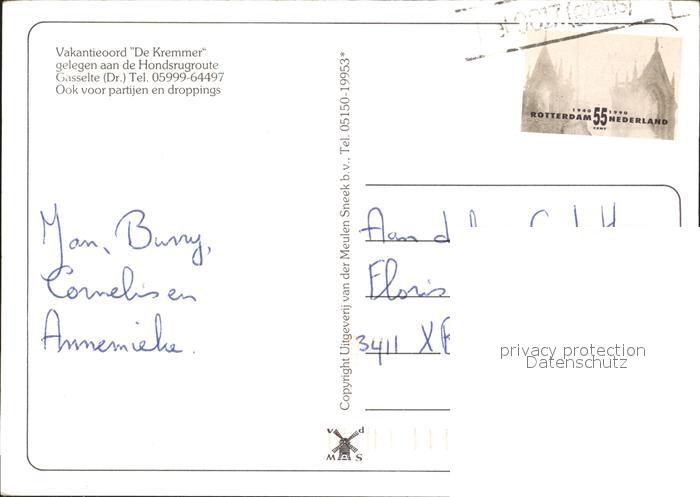 Vakantieoord "De Kremmer"
gelegen aan de Hondsrugroute
Gasselte (Dr.) Tel. 05999-64497
Ook voor partijen en droppings
Jan, Burry,
Cornelis en
Annemieke.
Copyright Uitgeverij van der Meulen Sneek b.v., Tel. 05150-19953*
v d
M S
1940 1990
ROTTERDAM 55 NEDERLAND
CENT
Aan d
Floris
3411 X
privacy protection
Datenschutz